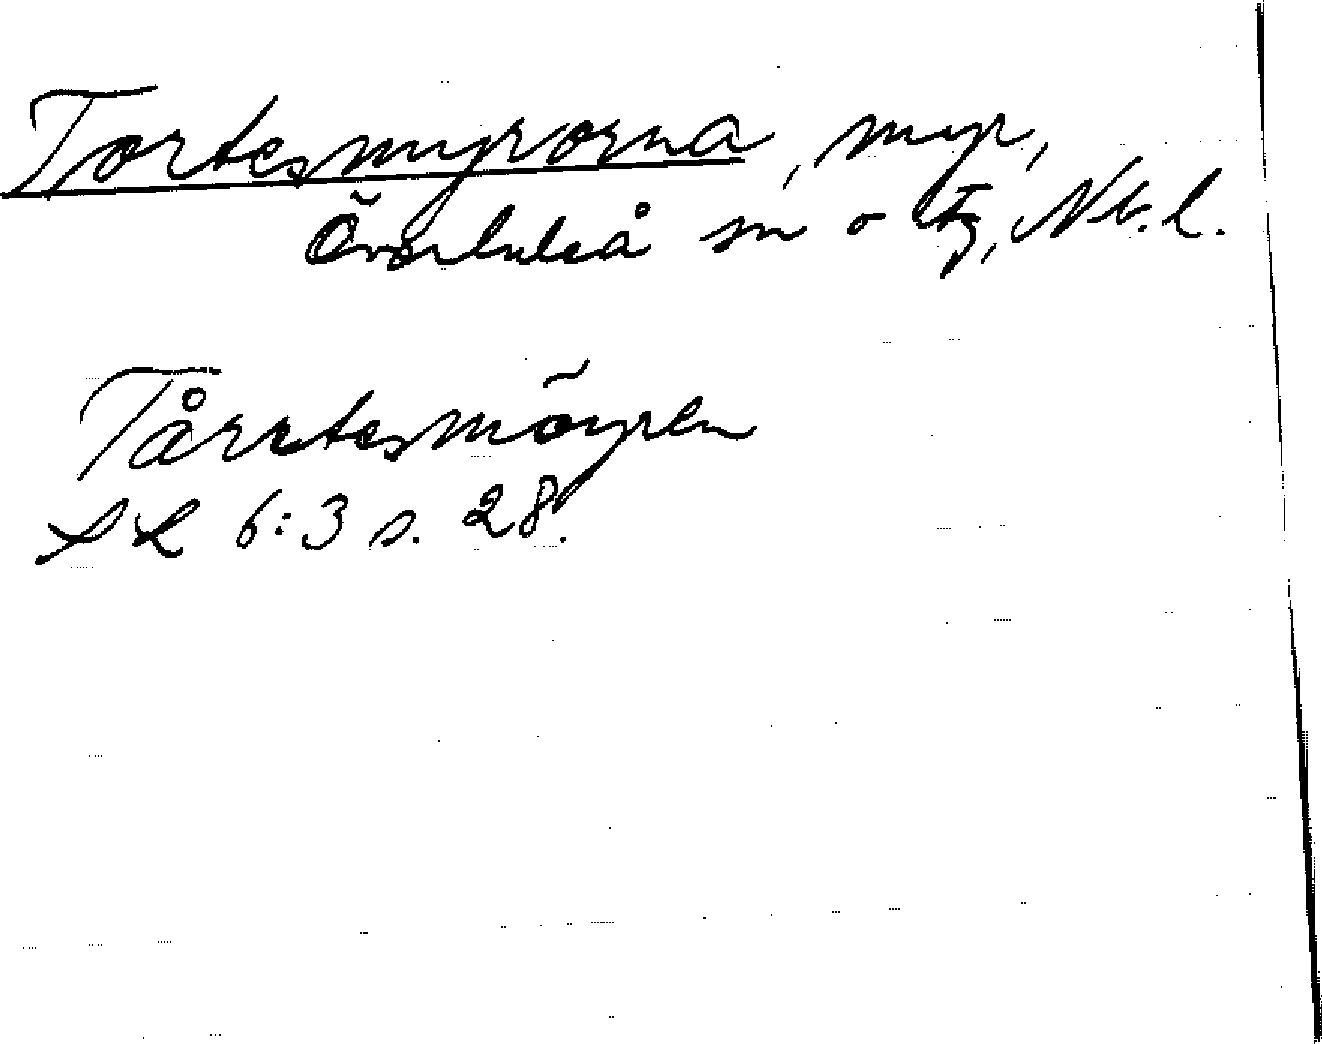 Tortesmyrorna, myr,
Överluleå sn o tg, Nb. l.
Tårrtesmöyren
SL 6:3 s. 28.